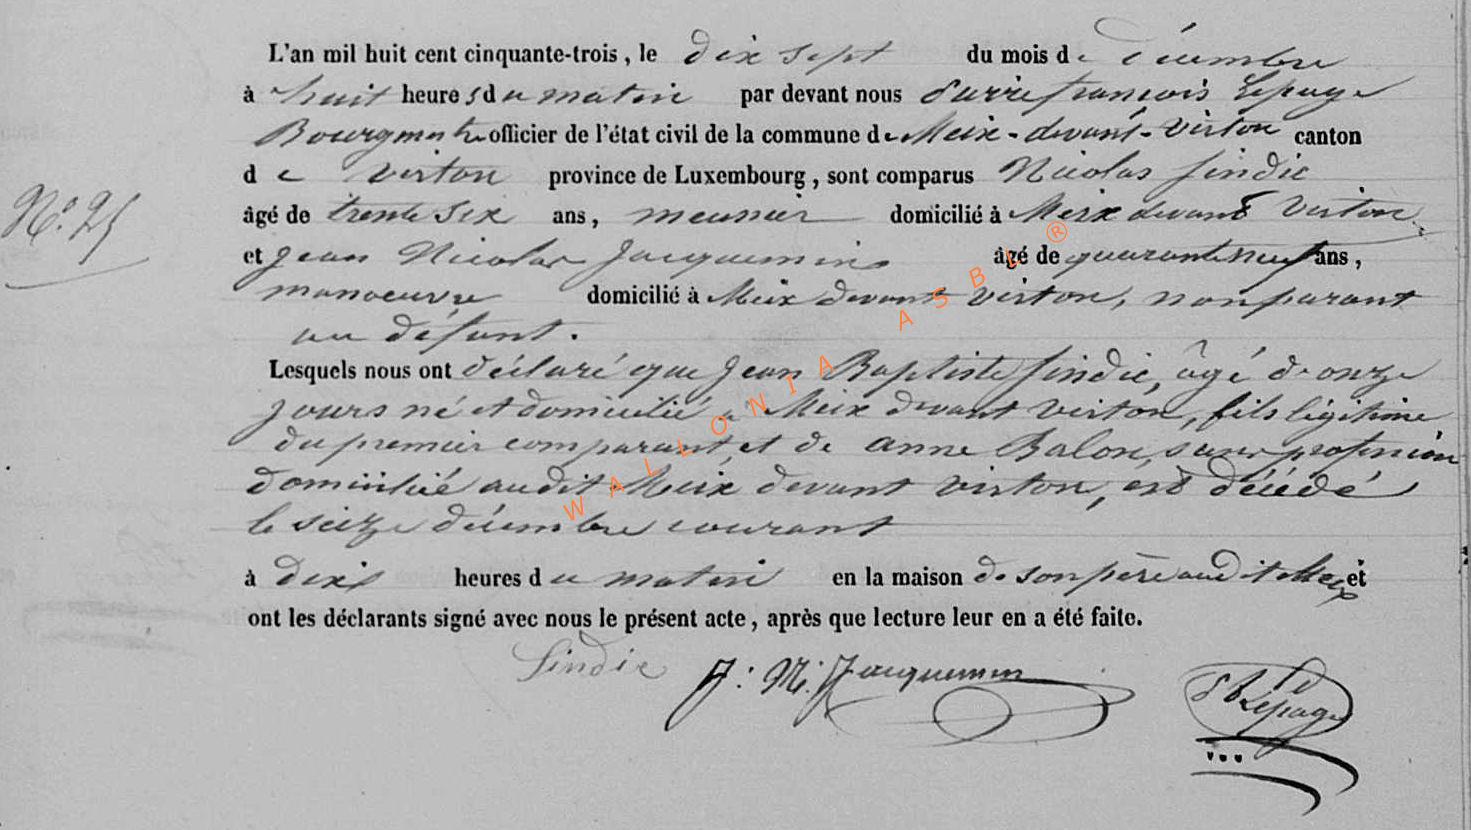 L'an mil huit cent cinquante-trois, le dix sept du mois de décembre
à huit heures du matin par devant nous françois Lepage
Bourgmestre officier de l'état civil de la commune de Meix-devant-Virton canton
de Virton province de Luxembourg, sont comparus Nicolas Sindic
N.º 25
âgé de trente six ans, meunier domicilié à Meix devant Virton
et Jean Nicolas Jacquemin âgé de quarante neuf ans,
manoeuvre domicilié à Meix devant Virton, non parant
au défunt.
Lesquels nous ont déclaré que Jean Baptiste Sindic, âgé de onze
jours né et domicilié à Meix devant Virton, fils légitime
du premier comparant, et de anne Balon, sans profession
domicilié audit Meix devant Virton, est décédé
le seize décembre courant
à dix heures du matin en la maison de son père audit Meix et
ont les déclarants signé avec nous le présent acte, après que lecture leur en a été faite.
Sindic J: N: Jacquemin Lepage
WALLONIA ASBL ®